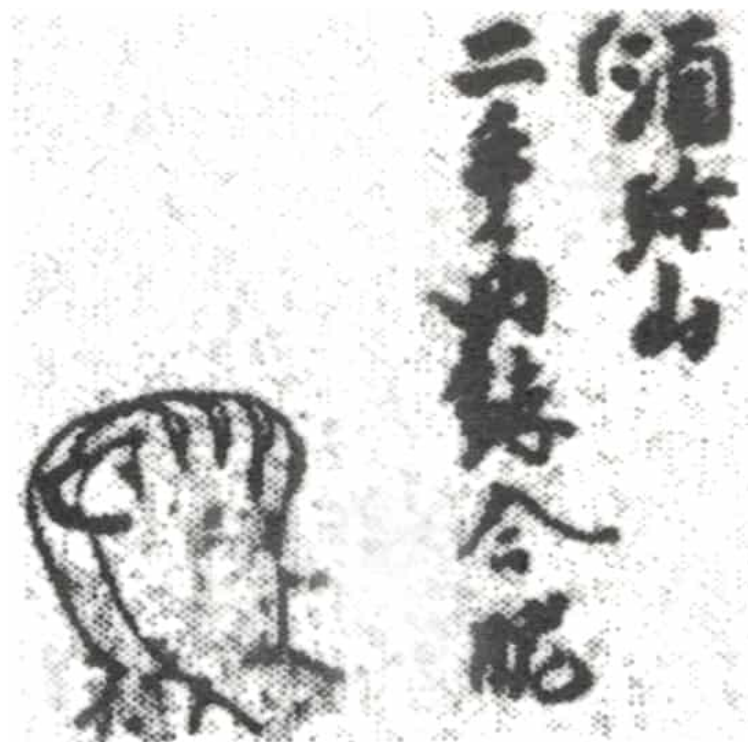 湏弥山
二手内縛合腕